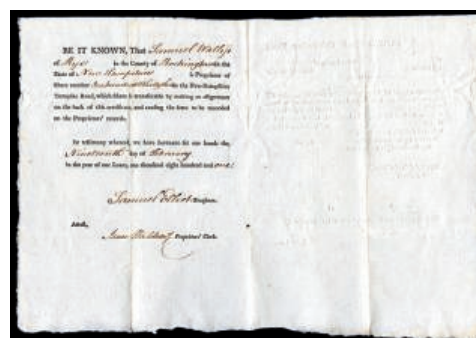 BE IT KNOWN, That Samuel Wallis
of Rye in the County of Rockingham in the
State of New Hampshire is Proprietor of
Share number in the New-Hampshire
Turnpike Road, which Share is transferable by making an assignment
on the back of this certificate, and causing the same to be recorded
on the Proprietors' records.
In testimony whereof, we have hereunto set our hands the
Nineteenth day of February
in the year of our Lord, one thousand eight hundred and one.
Samuel Elliot
Attest, Proprietors' Clerk.